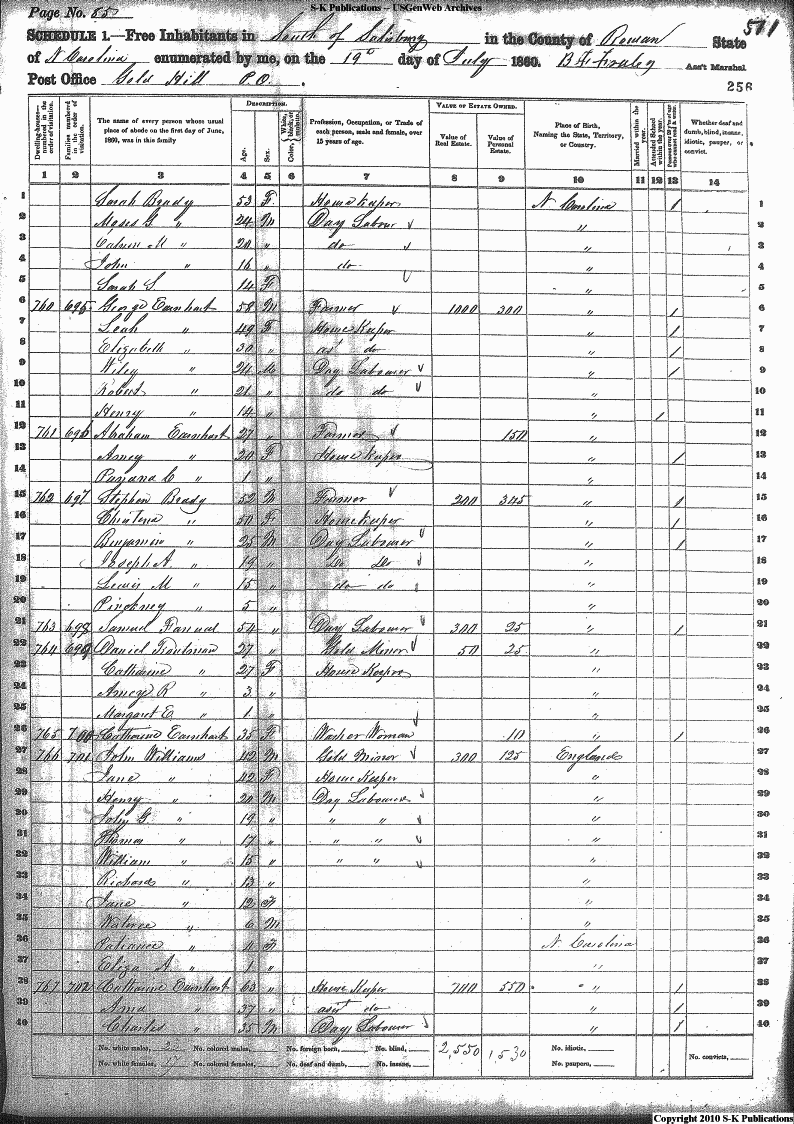 S-K Publications – USGenWeb Archives
Page No. 85
511
SCHEDULE 1.—Free Inhabitants in South of Salisbury in the County of Rowan State
of N Carolina enumerated by me, on the 19th day of July 1860. Ass't Marshal
Post Office Gold Hill P.O.
256
Dwelling-houses—numbered in the order of visitation.
Families numbered in the order of visitation.
The name of every person whose usual place of abode on the first day of June, 1860, was in this family
DESCRIPTION.
Age.
Sex.
Color, White, black, or mulatto.
Profession, Occupation, or Trade of each person, male and female, over 15 years of age.
VALUE OF ESTATE OWNED.
Value of Real Estate.
Value of Personal Estate.
Place of Birth, Naming the State, Territory, or Country.
Married within the year.
Attended School within the year.
Persons over 20 y'rs of age who cannot read & write.
Whether deaf and dumb, blind, insane, idiotic, pauper, or convict.
1 2 3 4 5 6 7 8 9 10 11 12 13 14
1 Sarah Brady 53 F Home Keeper N Carolina / 1
2 Moses G " 24 M Day Labour " 2
3 Calvin M " 20 " do " 3
4 John " 16 " do " 4
5 Sarah S. 14 F " 5
6 760 695 George Earnhart 58 M Farmer 1000 300 " / 6
7 Leah " 49 F Home Keeper " / 7
8 Elizabeth " 30 " do " / 8
9 Wiley " 24 M Day Labourer " / 9
10 Robert " 21 " do do " 10
11 Henry " 14 " " / 11
12 761 696 Abraham Earnhart 27 " Farmer 150 " 12
13 Amey " 20 F Home Keeper " / 13
14 C " 1 " " 14
15 762 697 Stephen Brady 52 M Farmer 200 345 " / 15
16 " 50 F Home Keeper " / 16
17 Benjamin " 25 M Day Labourer " / 17
18 Joseph A. " 19 " Do Do " 18
19 Lewis M " 15 " do do " 19
20 Pinckney " 5 " " 20
21 763 698 Samuel 54 " Day Labourer 300 25 " / 21
22 764 699 Daniel Troutman 27 " Gold Minor 50 25 " 22
23 Catharine " 27 F House Keeper " 23
24 Amey R " 3 " " 24
25 Margaret E. " 1 " " 25
26 765 700 Catharine Earnhart 35 F Washer Woman 10 " / 26
27 766 701 John Williams 42 M Gold Minor 300 125 England 27
28 Jane " 42 F Home Keeper " 28
29 Henry " 20 M Day Labourer " 29
30 John G. " 19 " " " " 30
31 Thomas " 17 " " " " 31
32 William " 15 " " " " 32
33 Richard " 13 " " 33
34 Jane " 12 F " 34
35 " 6 M " 35
36 " F N Carolina 36
37 Eliza A " 1 " " 37
38 767 702 Catharine Earnhart 63 " Home Keeper 700 550 " / 38
39 " 37 " asst do " / 39
40 Charles " 35 M Day Labourer " / 40
No. white males, No. colored males, No. foreign born, No. blind, 2,550 1,530 No. idiotic,
No. white females, 17 No. colored females, No. deaf and dumb, No. insane, No. paupers, No. convicts,
Copyright 2010 S-K Publications